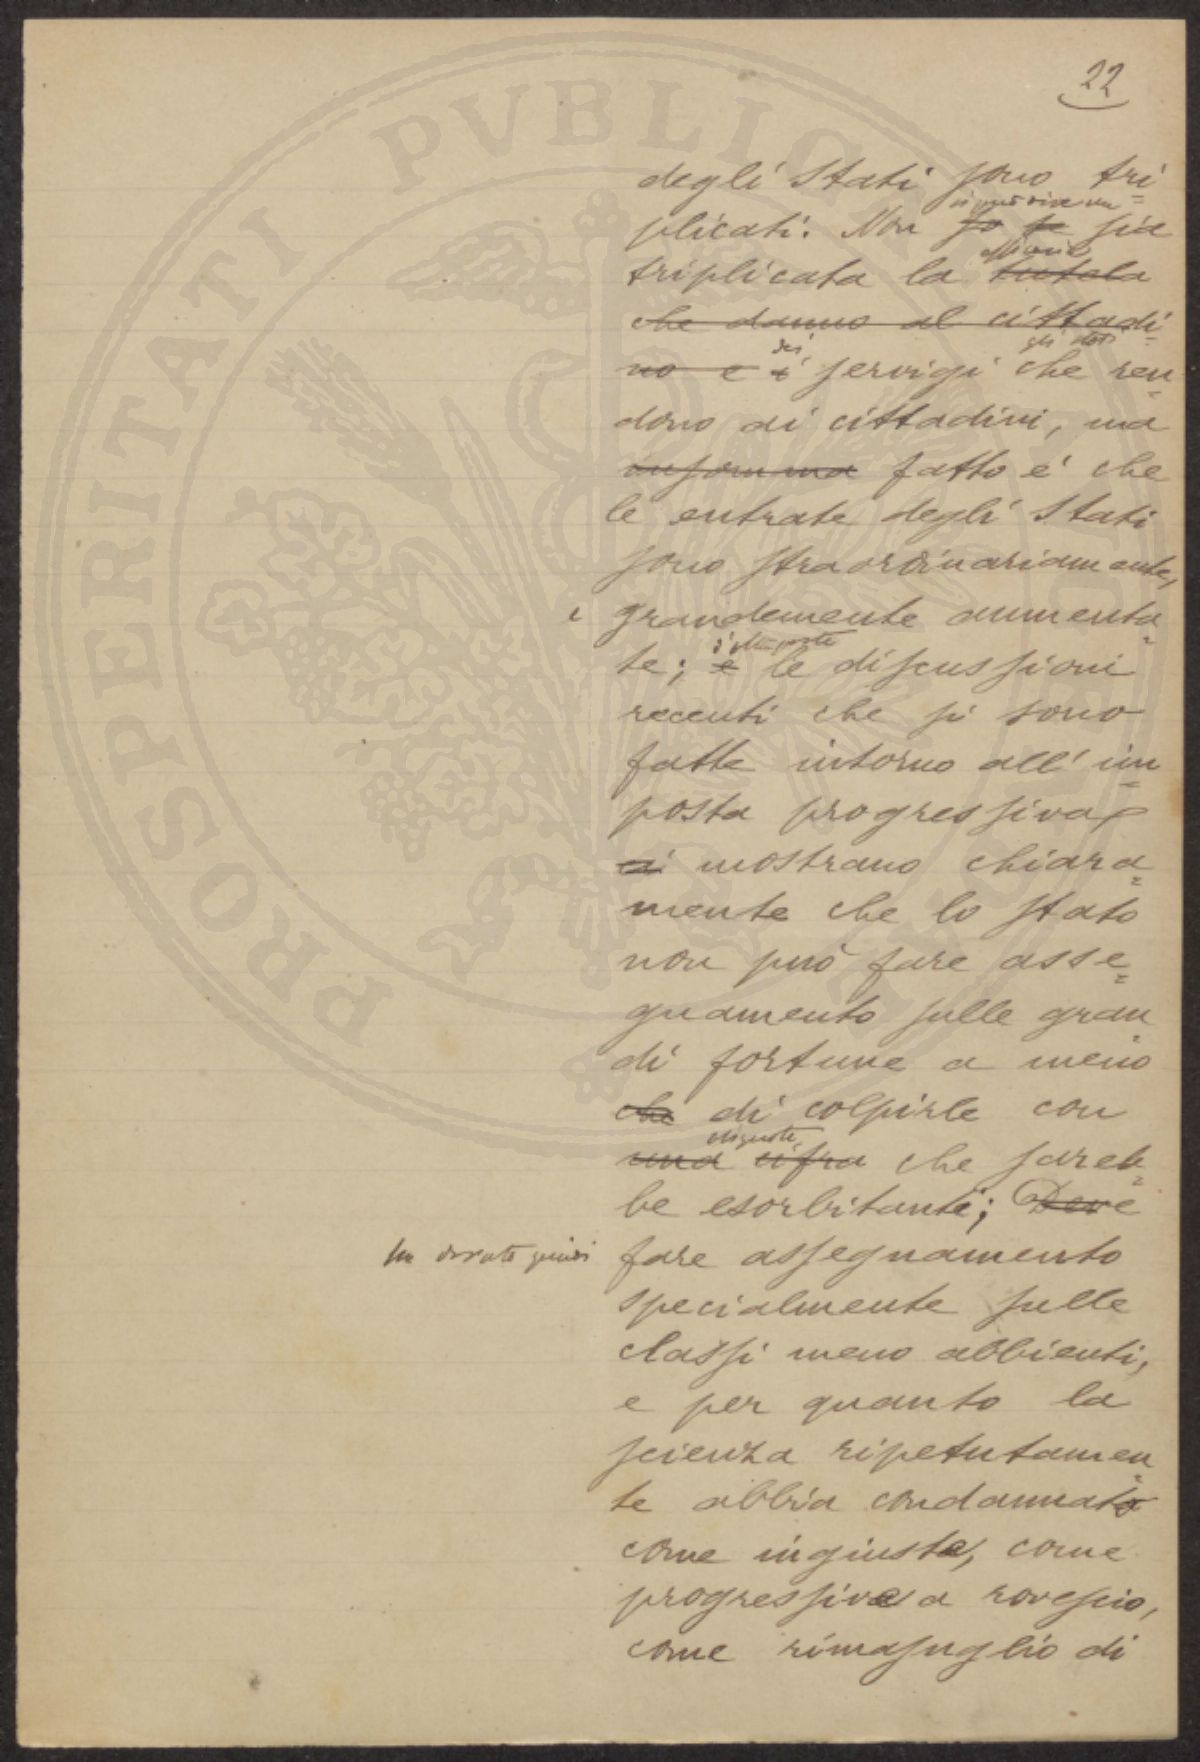 22
degli Stati sono tri=
si può dire che
plicati. Non so se sia
efficacia
triplicata la tutela
che danno al cittadi=
dei
gli stati
no e i servigi che ren=
dono ai cittadini, ma
insomma fatto è che
le entrate degli Stati
sono straordinariamente,
e grandemente aumenta=
d'altra parte
te; e le discussioni
recenti che si sono
fatte intorno all'im=
posta progressiva
ci mostrano chiara=
mente che lo stato
non può fare asse=
gnamento sulle gran
di fortune a meno
che di colpirle con
aliquote
una cifra che sareb=
be esorbitante; Deve
ha dovuto quindi
fare assegnamento
specialmente sulle
classi meno abbienti,
e per quanto la
scienza ripetutamen=
te abbia condannato
come ingiuste, come
progressive a rovescio,
come rimasuglio di
PROSPERITATI PVBLICAE